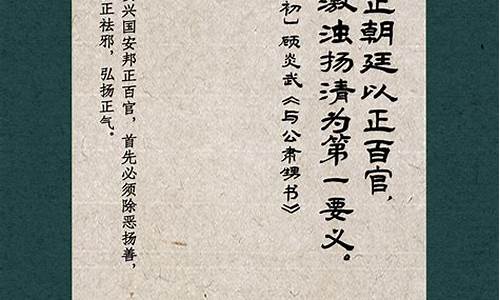 正朝廷以正百官，
激浊扬清为第一要义。
初】顾炎武《与公肃甥书》
兴国安邦正百官，首先必须除恶扬善，
正祛邪，弘扬正气。